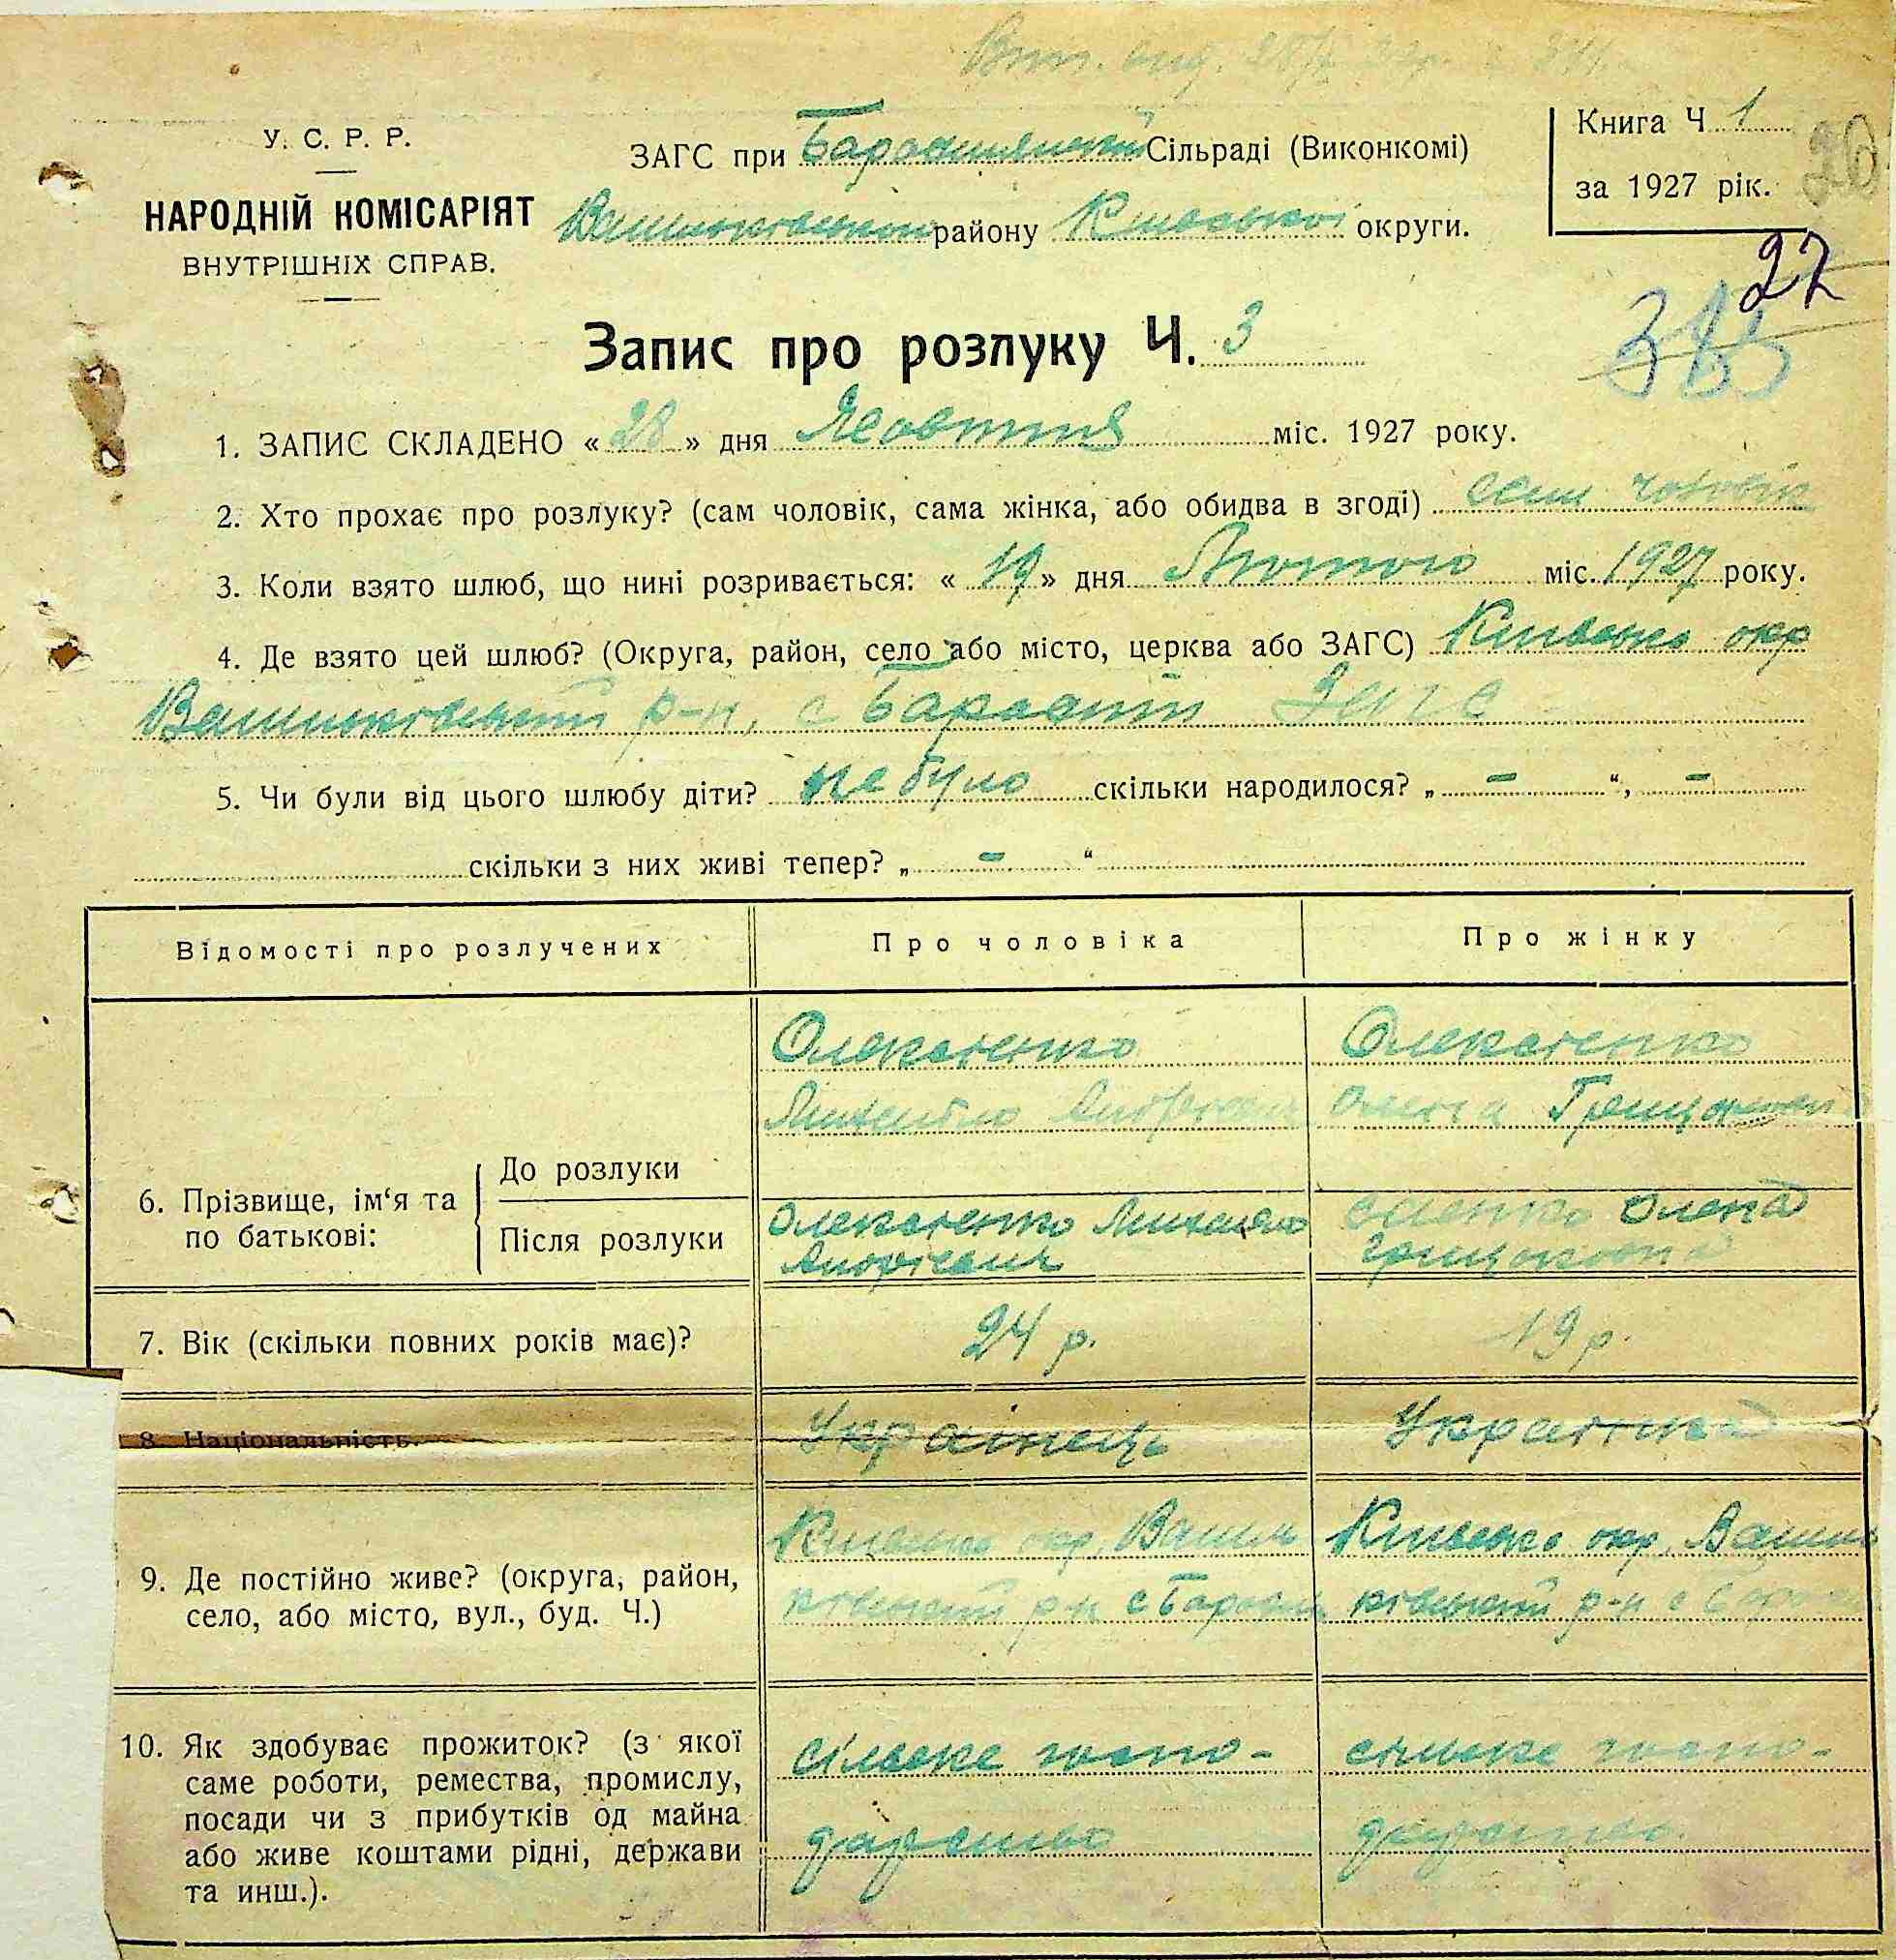 У. С. Р. Р.
НАРОДНІЙ КОМІСАРІЯТ
ВНУТРІШНІХ СПРАВ.
ЗАГС при Сільраді (Виконкомі)
району Київської округи.
Книга Ч 1
за 1927 рік.
26
27
Запис про розлуку Ч. 3
1. ЗАПИС СКЛАДЕНО « 28 » дня Жовтня міс. 1927 року.
2. Хто прохає про розлуку? (сам чоловік, сама жінка, або обидва в згоді) сам чоловік
3. Коли взято шлюб, що нині розривається: « 19 » дня Лютого міс. 1927 року.
4. Де взято цей шлюб? (Округа, район, село або місто, церква або ЗАГС) окр
р-н, с Загс
5. Чи були від цього шлюбу діти? не було скільки народилося? „ – “, –
скільки з них живі тепер? „ – “
Відомості про розлучених
Про чоловіка
Про жінку
6. Прізвище, ім‘я та по батькові:
До розлуки
Олексієнко
Михайло
Олексієнко
Олена
Після розлуки
Олексієнко
Олена
7. Вік (скільки повних років має)? 24 р. 19 р.
8. Національність. Українець Українка
9. Де постійно живе? (округа, район,
село, або місто, вул., буд. Ч.)
окр.
р-н с
окр.
р-н с
10. Як здобуває прожиток? (з якої
саме роботи, ремества, промислу,
посади чи з прибутків од майна
або живе коштами рідні, держави
та инш.).
сільське госпо-
дарство
сільське госпо-
дарство